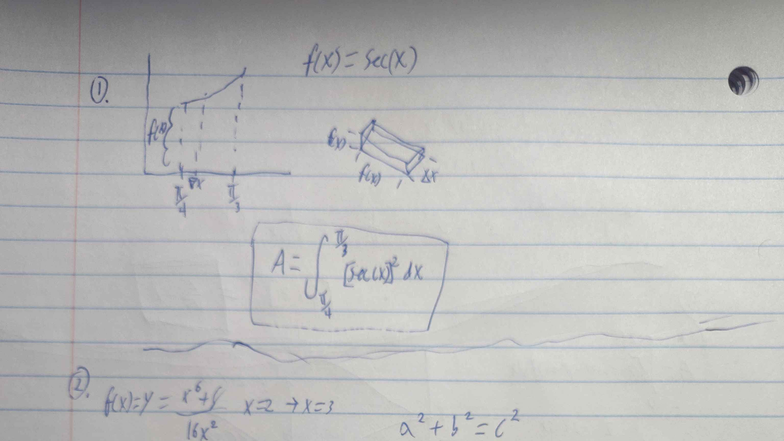 f(x) = sec(x)
①.
f(x)
π/4 π/3
f(x) f(x) Δx
A = ∫_{π/4}^{π/3} [sec(x)]² dx
②. f(x)=y = (x⁶+8)/(16x²) x=2 → x=3
a² + b² = c²